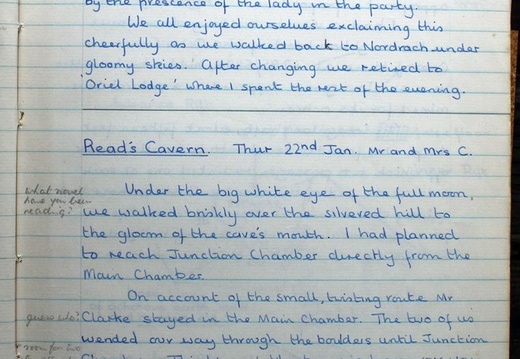 by the prescence of the lady in the party.
We all enjoyed ourselves exclaiming this
cheerfully as we walked back to Nordrach under
gloomy skies. After changing we retired to
'Oriel Lodge' where I spent the rest of the evening.
Read's Cavern. Thur 22nd Jan. Mr and Mrs C.
what novel
have you been
reading?
Under the big white eye of the full moon,
we walked briskly over the silvered hill to
the gloom of the cave's mouth. I had planned
to reach Junction Chamber directly from the
Main Chamber.
On account of the small, twisting route Mr
guess who?
Clarke stayed in the Main Chamber. The two of us
wended our way through the boulders until Junction
room for two